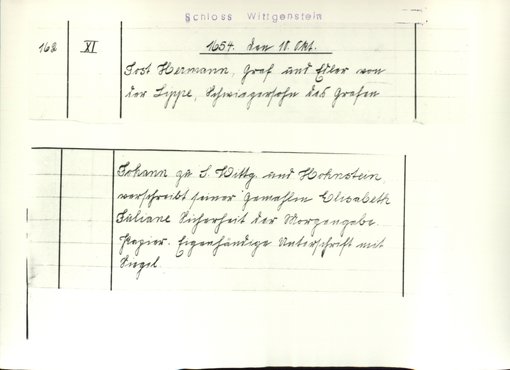 Schloss Wittgenstein
162 XI 1654. den 10. Okt.
Jost Hermann, Graf und Edler von
der Lippe, Schwiegersohn des Grafen
Johann zu S. Wittg. und Hohnstein,
verschreibt seiner Gemahlin Elisabeth
Juliane Sicherheit der Morgengabe.
Papier. Eigenhändige Unterschrift mit
Siegel.